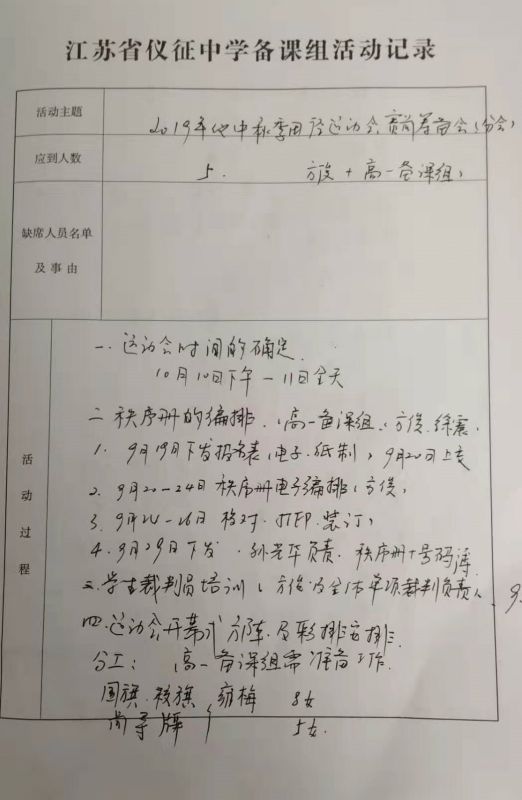 江苏省仪征中学备课组活动记录
活动主题
2019年仪中秋季田径运动会赛前筹备会（分会）
应到人数
5. 方俊 + 高一备课组
缺席人员名单
及事由
活动过程
一. 运动会时间的确定.
10月10日下午 — 11日全天
二 秩序册的编排. （高一备课组、方俊. 徐震
1. 9月19日下发报名表（电子. 纸制）9月20日上交
2. 9月20—24日 秩序册电子编排（方俊）
3. 9月24—26日 校对. 打印. 装订）
4. 9月29日下发. 孙光华负责. 秩序册+号码薄
三. 学生裁判员培训（方俊及全体单项裁判负责人）9.
四. 运动会开幕式方阵. 及彩排安排.
分工: 高一备课组需准备工作.
国旗. 校旗 雍梅 8女
5女.